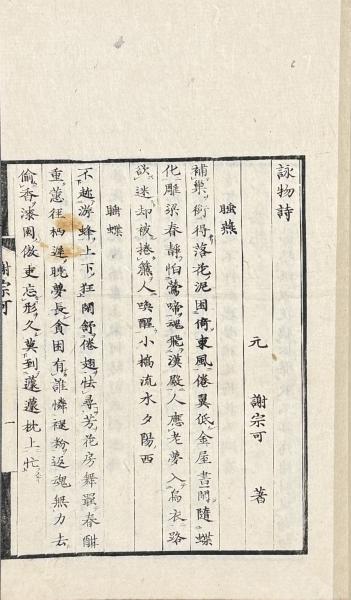 詠物詩
元 謝宗可 著
睡燕
補巢銜得落花泥困倚東風倦翼低金屋晝閒隨蝶
化雕梁春靜怕鶯啼魂飛漢殿人應老夢入烏衣路
欲迷却被捲簾人喚醒小橋流水夕陽西
睡蝶
不趂游蜂上下狂閒舒倦翅怯尋芳花房舞罷春酣
重蕙徑栖遲晚夢長貪困有誰憐褪粉返魂無力去
偷香漆園傲吏忘形久莫到蘧蘧枕上忙
謝宗可
一